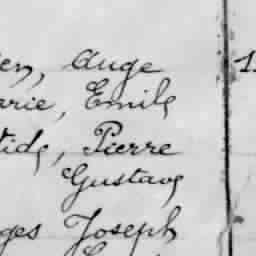 en, Auge
arie, Emile
tide, Pierre
Gustave
ges Joseph